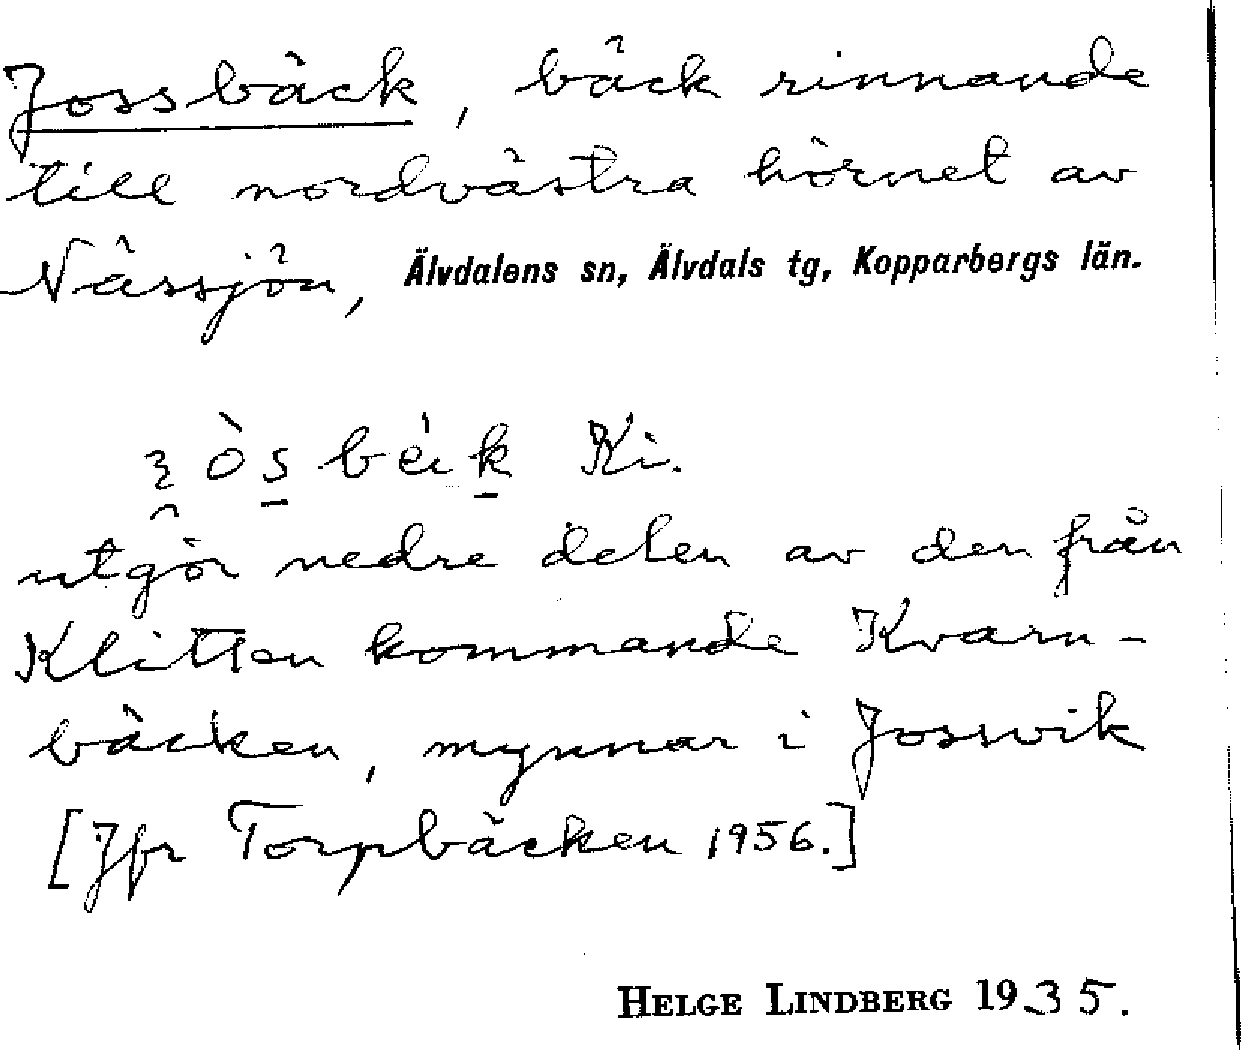 Jossbäck, bäck rinnande
till nordvästra hörnet av
Nässjön, Älvdalens sn, Älvdals tg, Kopparbergs län.
Ki.
utgör nedre delen av den från
Klitten kommande Kvarn-
bäcken, mynnar i Jossvik
[Jfr Torpbäcken 1956.]
HELGE LINDBERG 1935.